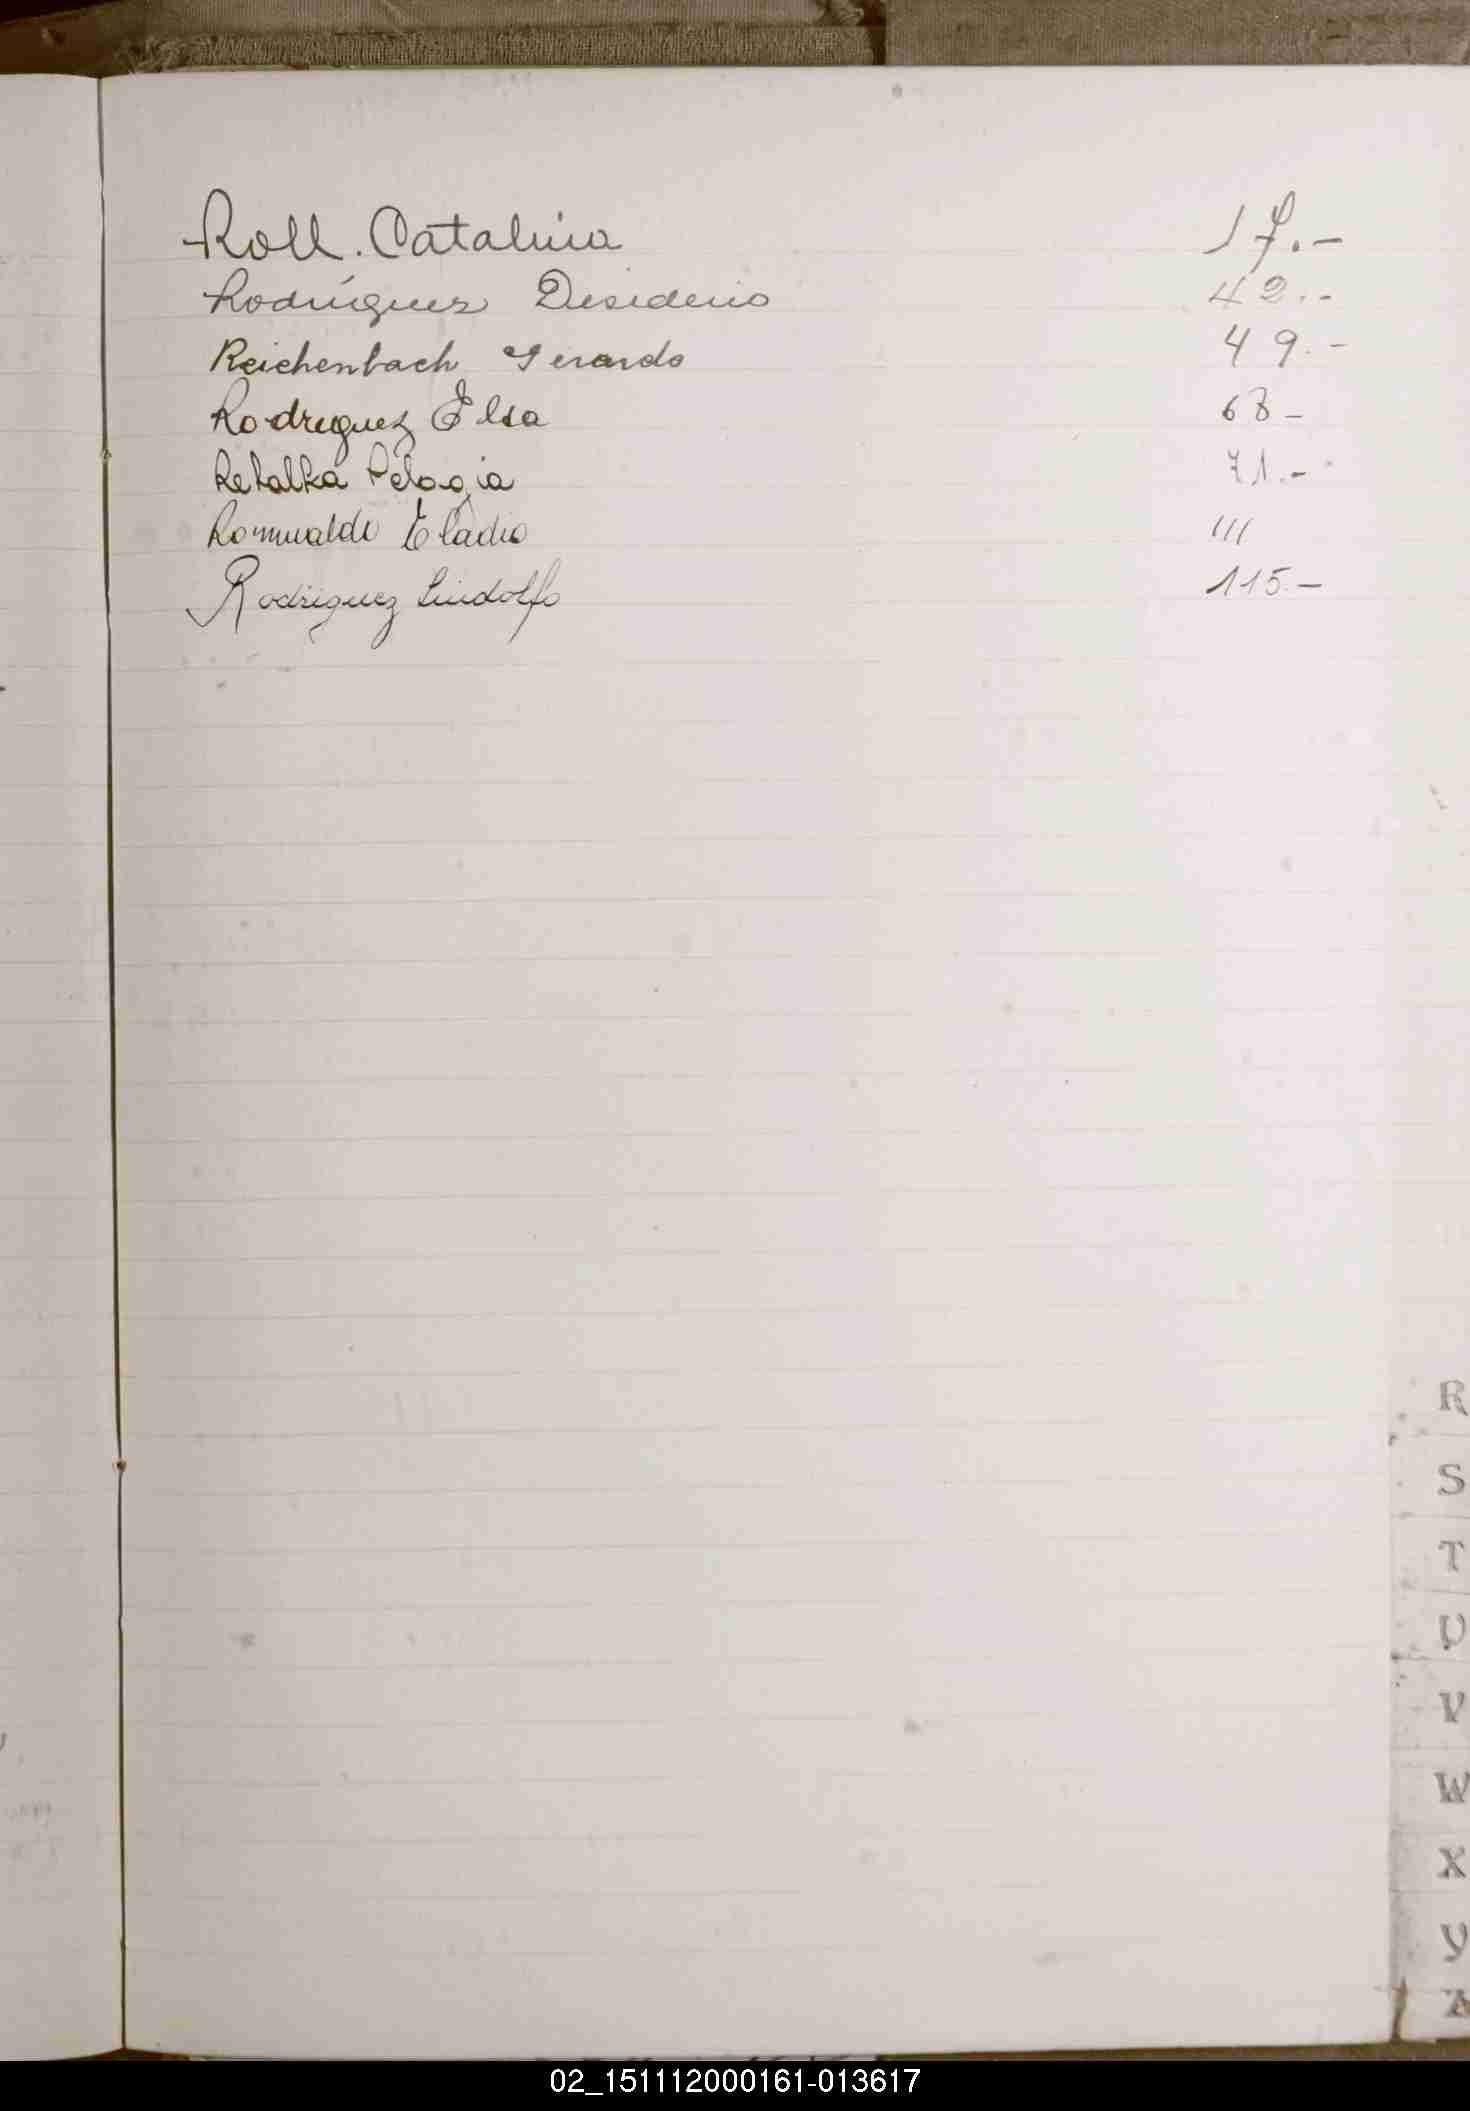 Roll. Catalina 17.-
Rodríguez Desiderio 42.-
Reichenbach Gerardo 49.-
Rodreguez Elsa 68-
71.-
Romualdi Eladio 111
Rodriguez Lindolfo 115.-
R
S
T
U
V
W
X
Y
Z
02_151112000161-013617